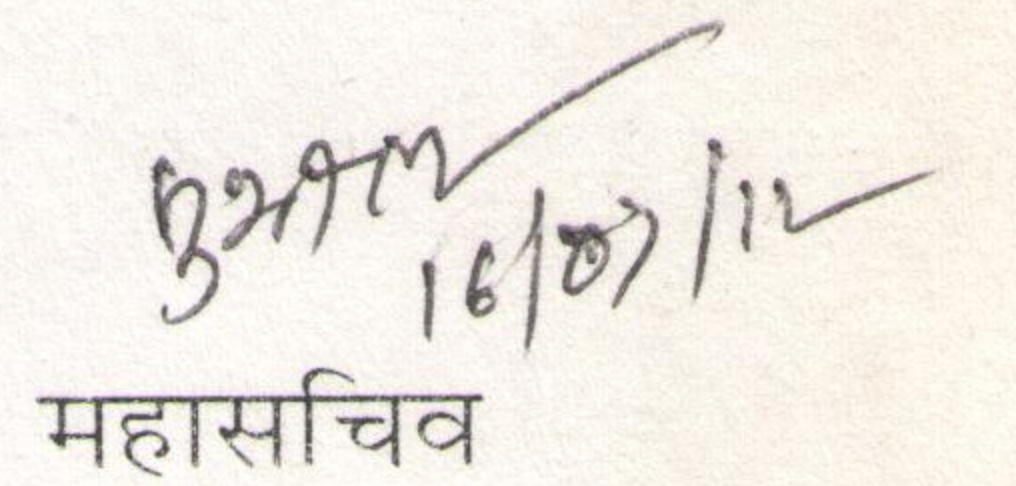 16/07/12
महासचिव